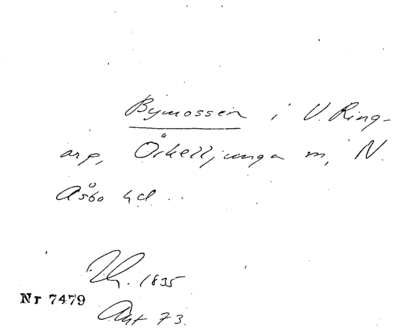 Bymossen i V. Ring-
arp, Örkelljunga m, N.
Åsbo hd.
1835
Nr 7479
73.